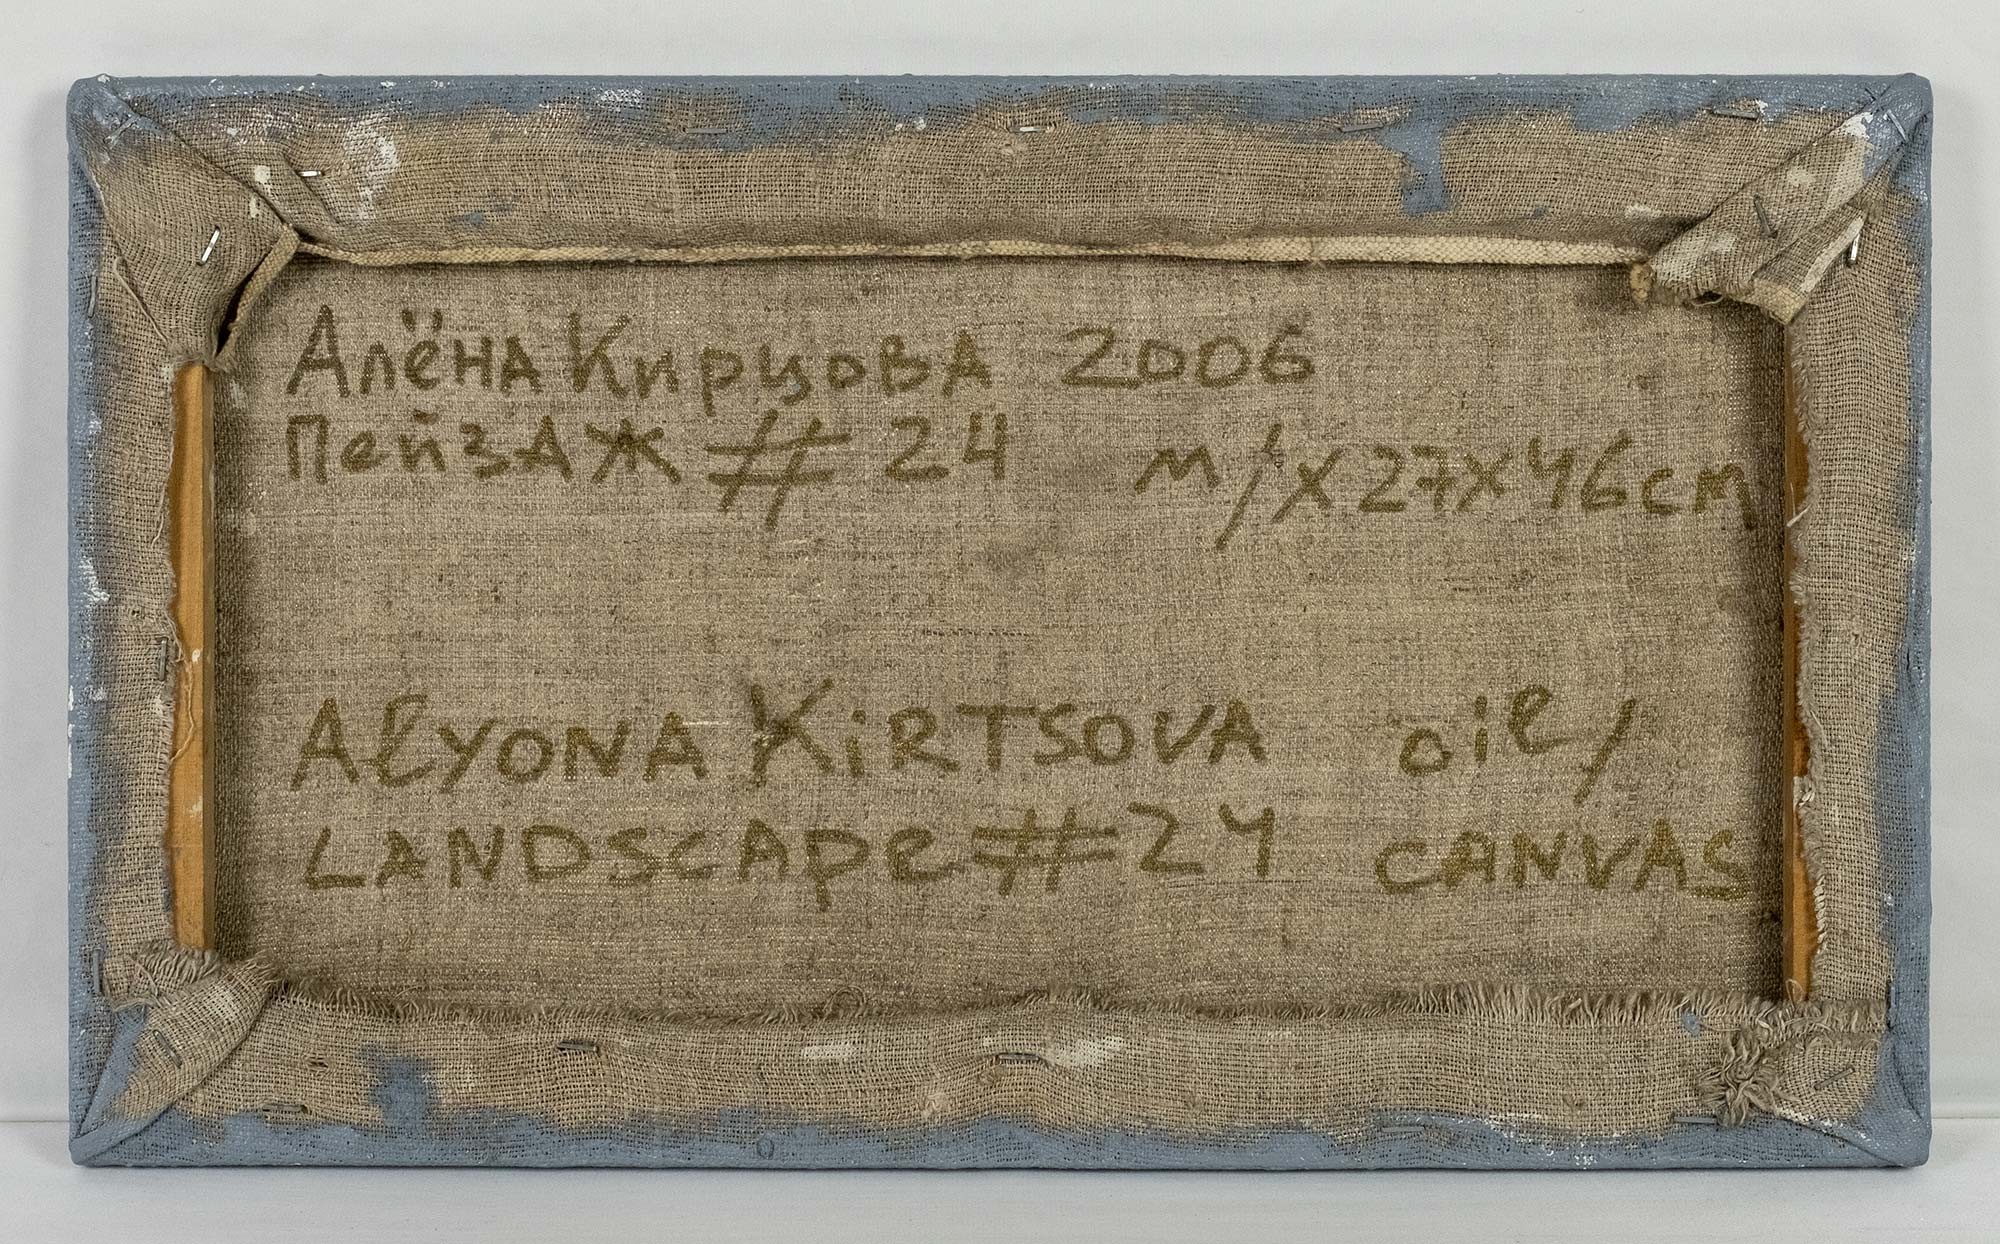 Алёна Кирцова 2006
Пейзаж # 24 м/х 27х46см
Alyona Kirtsova oil/
Landscape # 24 canvas